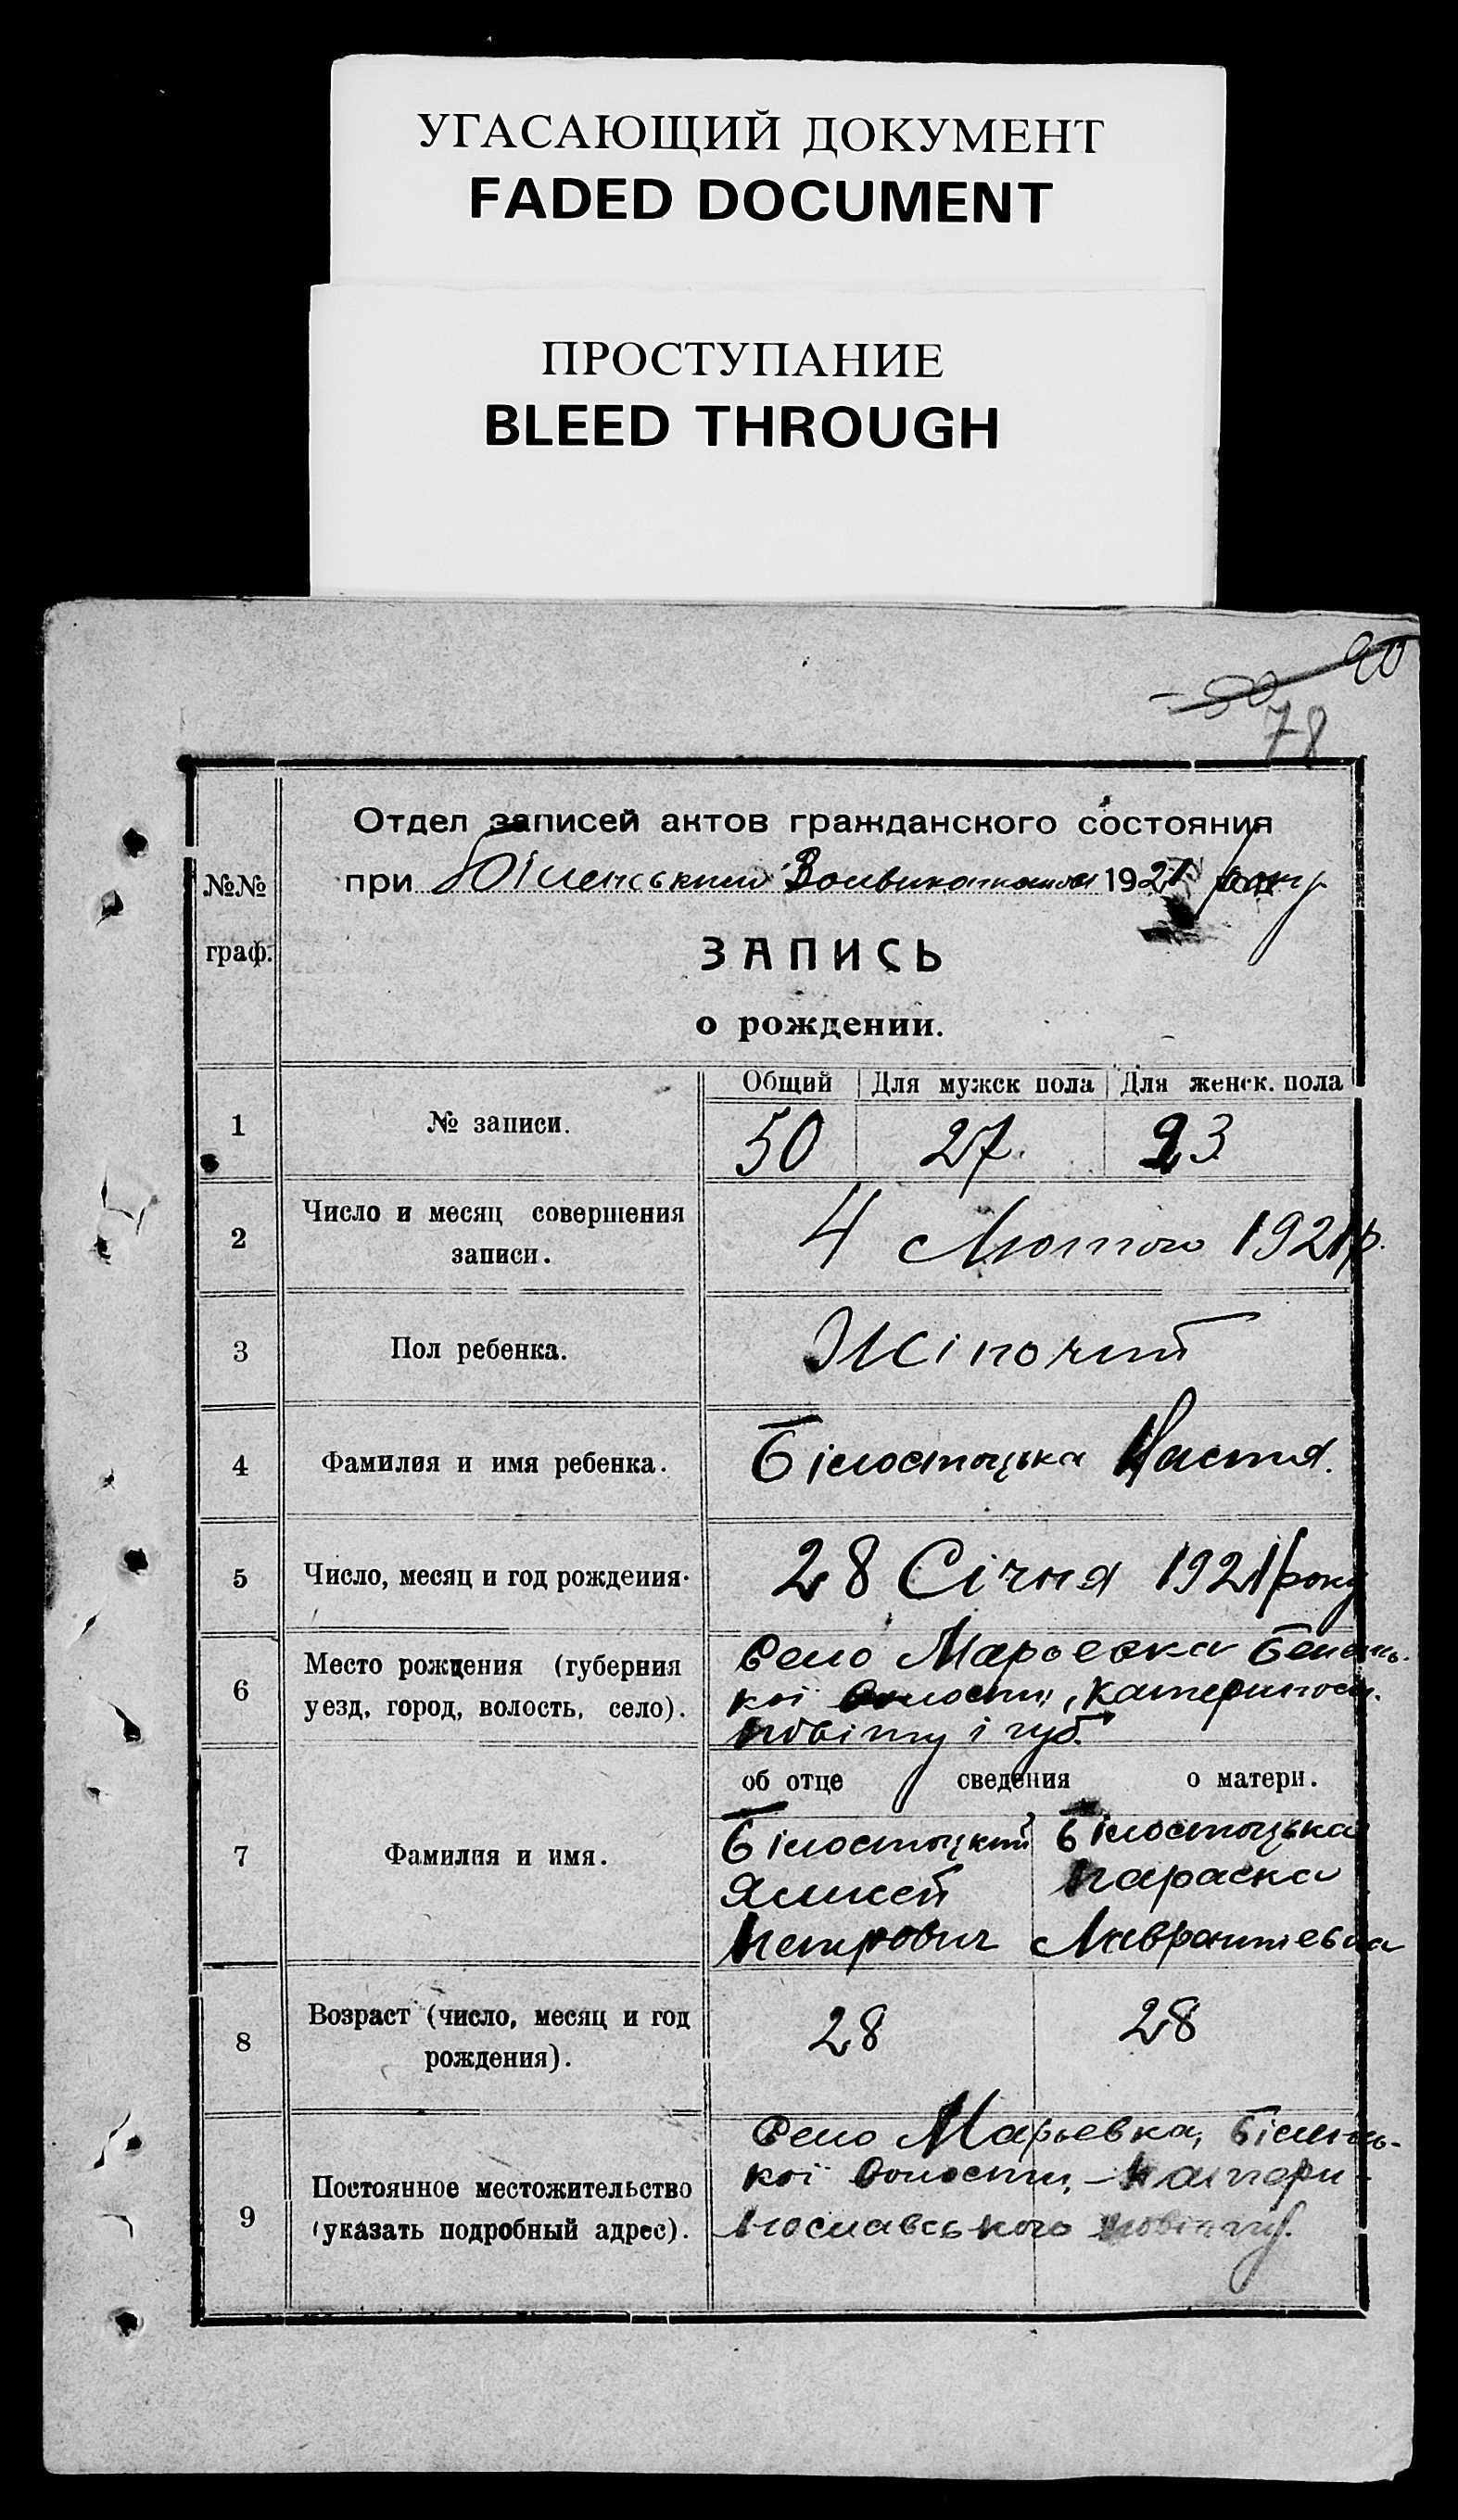 УГАСАЮЩИЙ ДОКУМЕНТ
FADED DOCUMENT
ПРОСТУПАНИЕ
BLEED THROUGH
90
78
Отдел записей актов гражданского состояния
№№ при Біленським Волвиконкомові 1921 року
граф.
ЗАПИСЬ
о рождении.
Общий Для мужск пола Для женск. пола
1 № записи. 50 27. 23
2 Число и месяц совершения записи. 4 Лютого 1921 р.
3 Пол ребенка. Жіночий
4 Фамилия и имя ребенка. Білостоцька Настя.
5 Число, месяц и год рождения. 28 Січня 1921 року
6 Место рождения (губерния уезд, город, волость, село).
Село Марьевка Белень-
кої волости, Катериносл.
повіту і губ.
об отце сведения о матери.
7 Фамилия и имя.
Білостоцький Білостоцька
Яликей Параска
Петрович Лаврентіевна
8 Возраст (число, месяц и год рождения). 28 28
9 Постоянное местожительство (указать подробный адрес).
Село Марьевка, Білень-
кої волости, Катери-
нославського повіту.